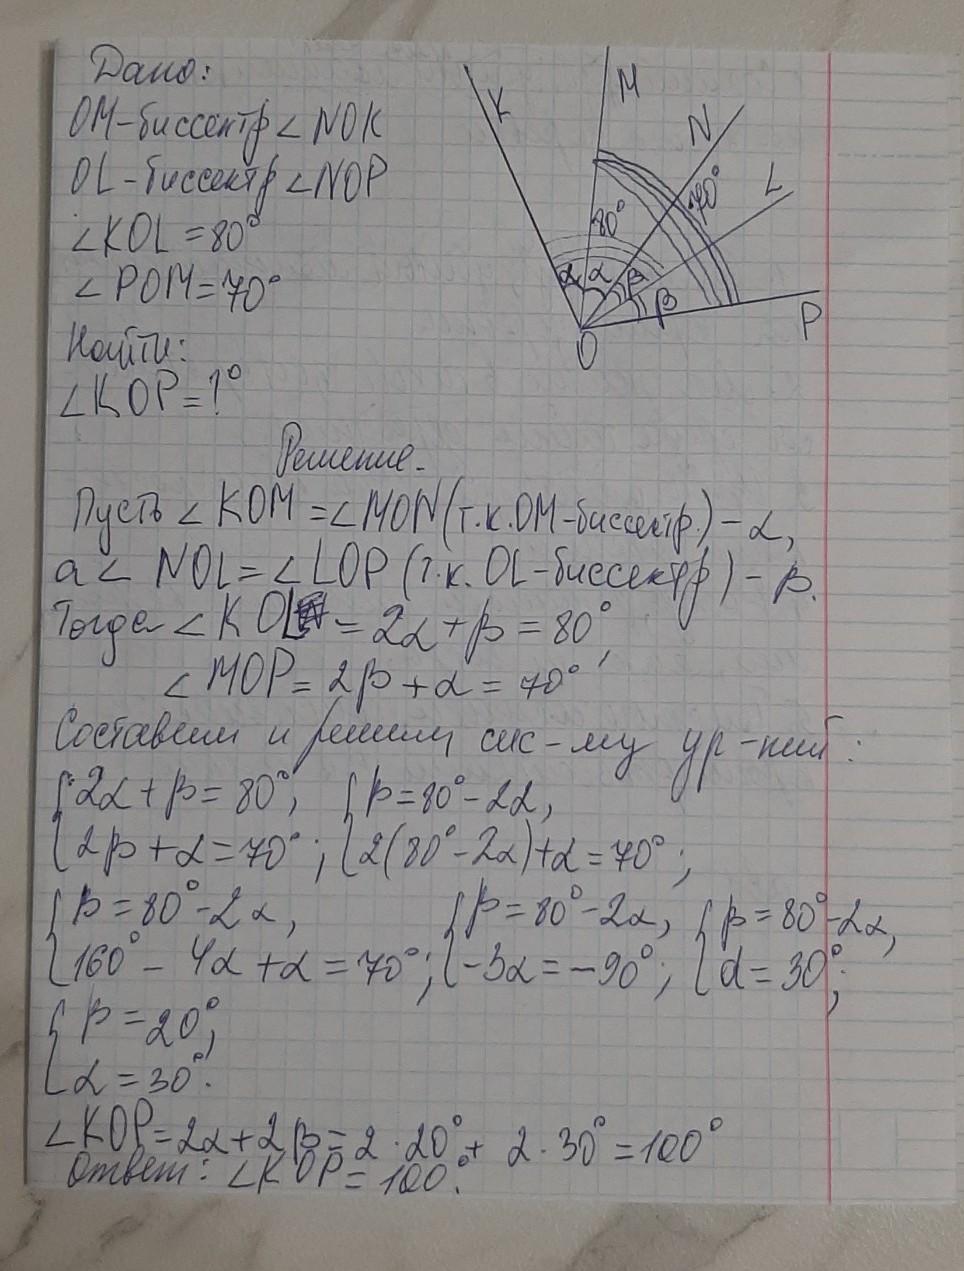 Дано:
OM-биссектр ∠NOK
OL-биссектр ∠NOP
∠KOL=80°
∠POM=70°
Найти:
∠KOP=?°
K
M
N
L
P
O
80°
70°
α α β β
Решение.
Пусть ∠KOM=∠MON(т.к.OM-биссектр.)-α,
а∠NOL=∠LOP(т.к. OL-биссектр)-β.
Тогда ∠KOL=2α+β=80°,
∠MOP=2β+α=70°
Составим и решим сис-му ур-ний:
{2α+β=80°, {β=80°-2α,
{2β+α=70°; {2(80°-2α)+α=70°;
{β=80°-2α, {β=80°-2α, {β=80°-2α,
{160°-4α+α=70°; {-3α=-90°; {α=30°;
{β=20°,
{α=30°.
∠KOP=2α+2β=2·20°+2·30°=100°
Ответ: ∠KOP=100°.